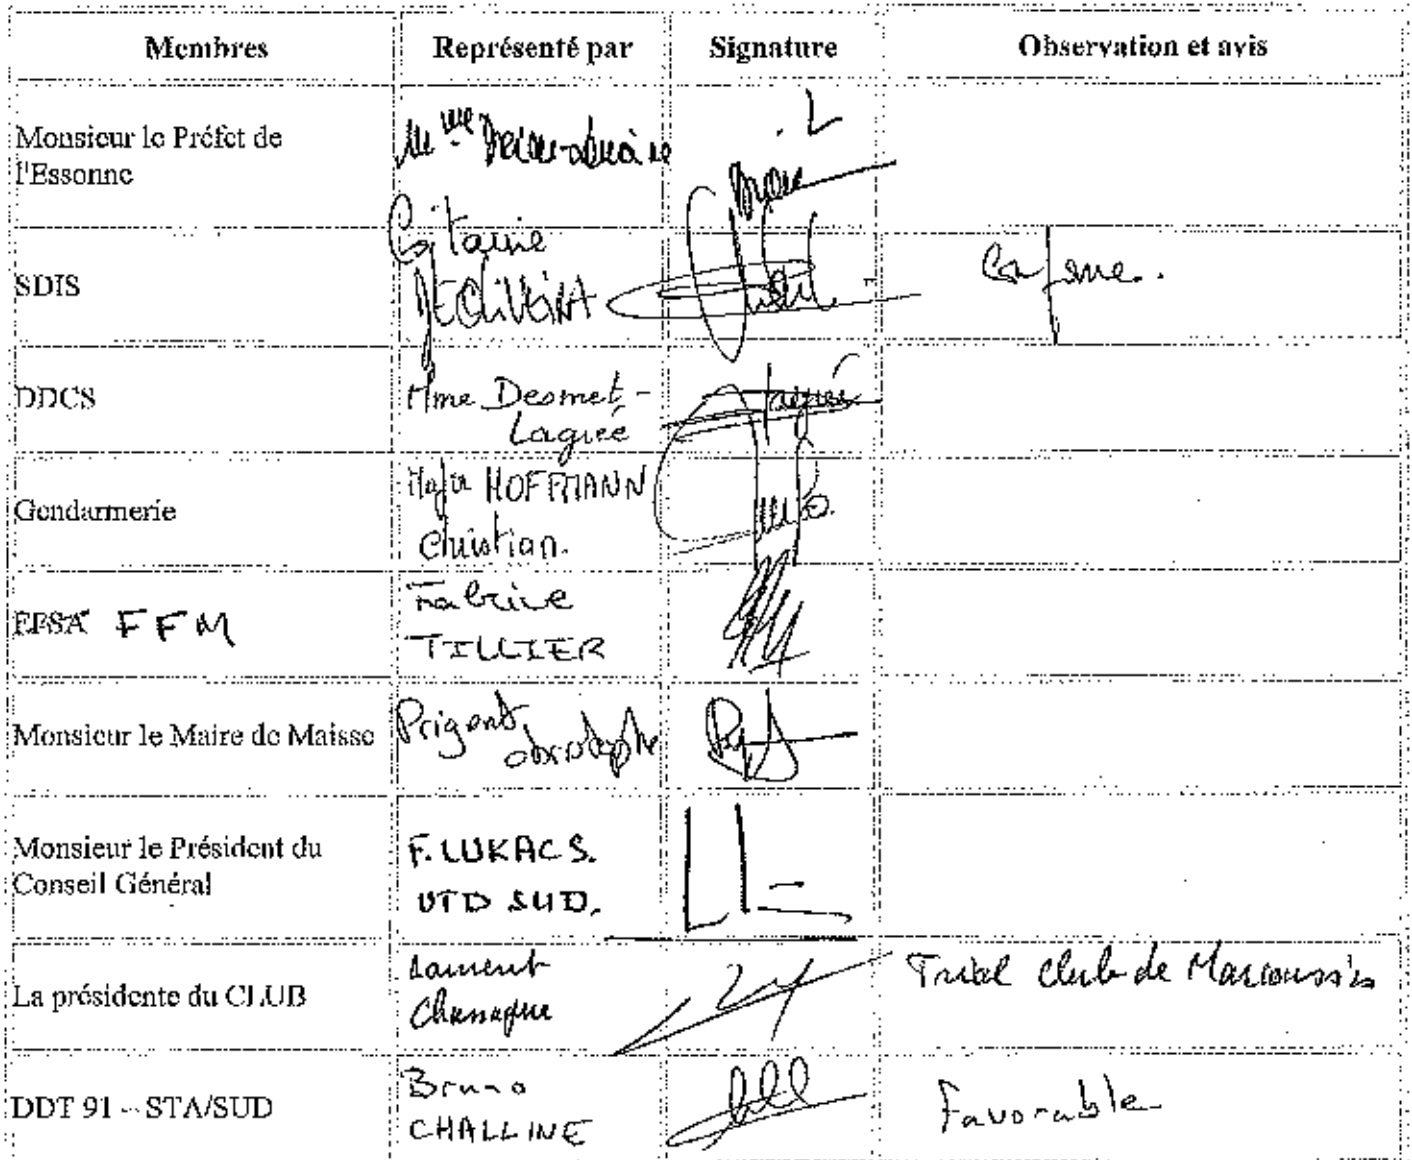 Membres Représenté par Signature Observation et avis
Monsieur le Préfet de
l'Essonne
Mme
SDIS
Capitaine
DE OLIVEIRA
Conforme.
DDCS
Mme Desmet-
Lagrée
Gendarmerie
Major HOFFMANN
Christian.
FFSA FFM
Fabrice
TILLIER
Monsieur le Maire de Maisse
Prigent
christophe
Monsieur le Président du
Conseil Général
F. LUKACS.
UTD SUD.
La présidente du CLUB
Laurent
Trial club de Marcoussis
DDT 91 – STA/SUD
Bruno
CHALLINE
Favorable